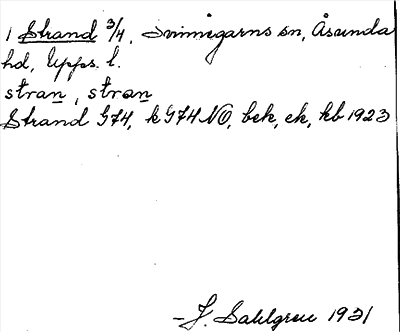 1 Strand 3/4, Svinnegarns sn, Åsunda
hd, Upps. l.
stran, stran
Strand G74, k G74 NO, bek, ek, kb 1923
– J. Sahlgren 1931